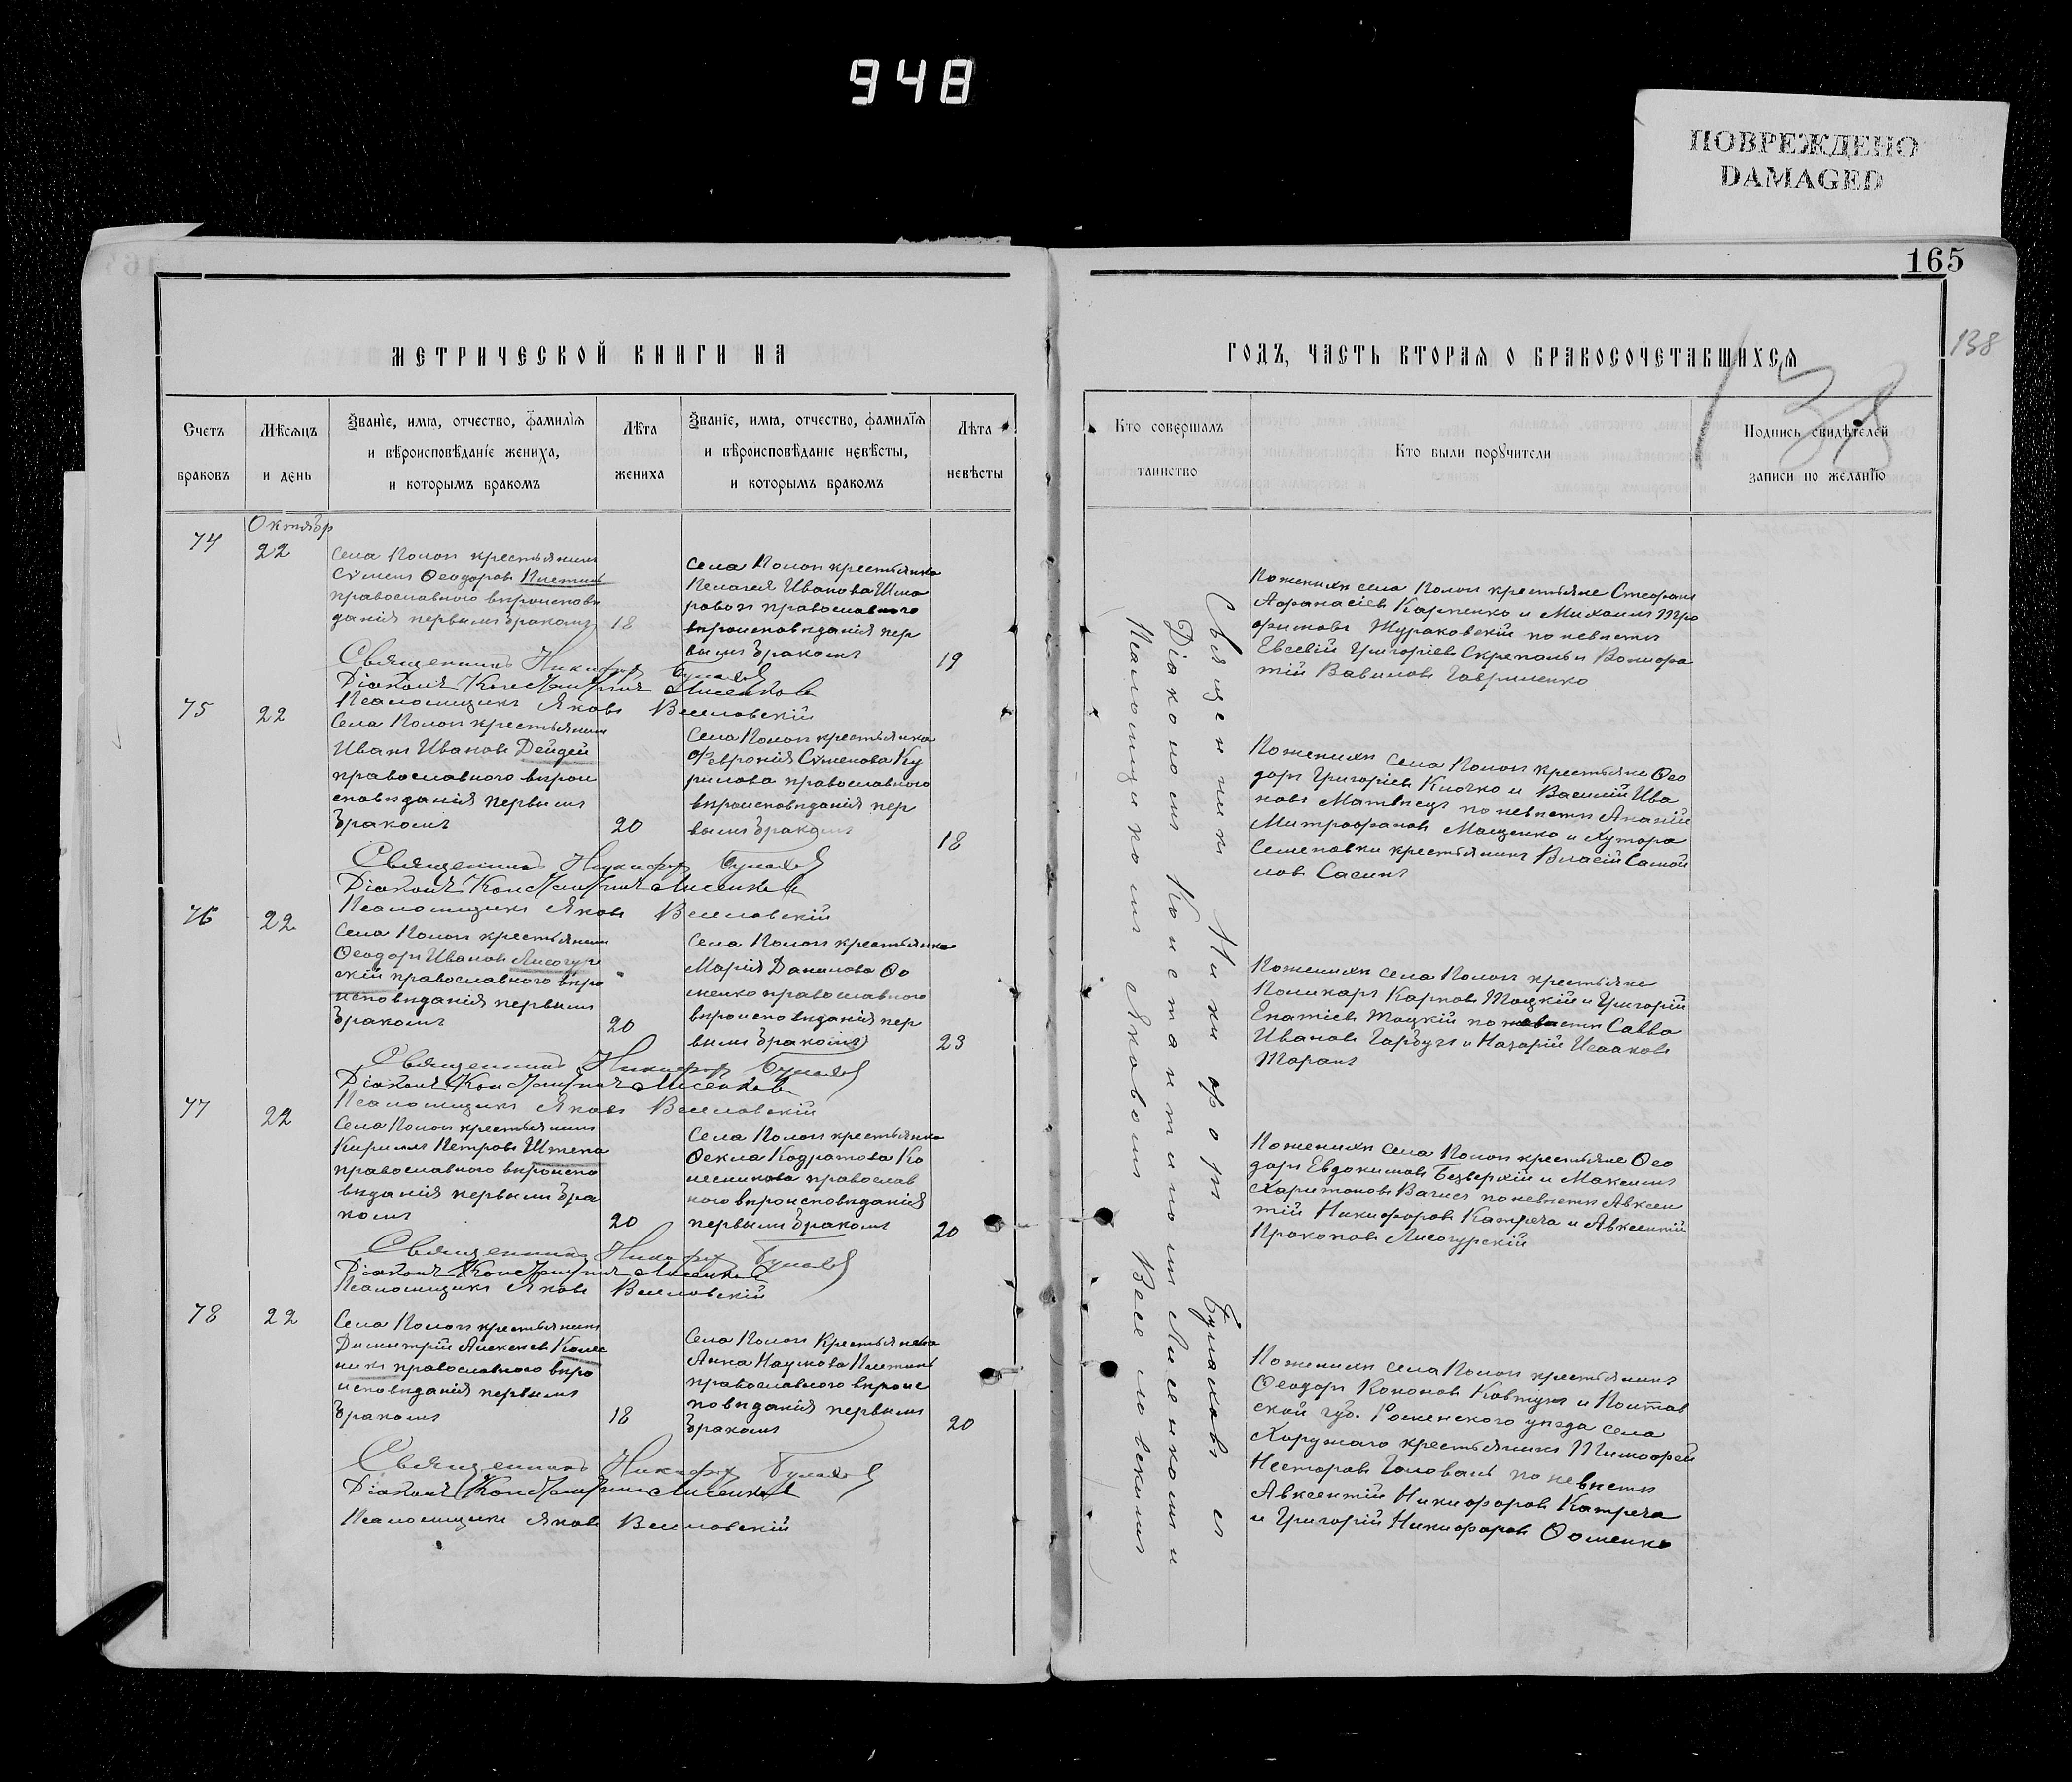 948
ПОВРЕЖДЕНО
DAMAGED
165
138
138
МЕТРИЧЕСКОЙ КНИГИ НА
Счетъ браковъ
Мѣсяцъ и день
Званїе, имя, отчество, фамилїя и вѣроисповѣданїе жениха, и которымъ бракомъ
Лѣта жениха
Званїе, имя, отчество, фамилїя и вѣроисповѣданїе невѣсты, и которымъ бракомъ
Лѣта невѣсты
74
Октябр
22
Села Полон крестьянинъ
Сѵмеон Ѳеодоровъ Плетинь
православного вѣроисповѣ
данія первымъ бракомъ
18
Села Полон крестьянка
Пелагея Иванова Шма
ровоз православного
вѣроисповѣданія пер
вымъ бракомъ
19
Священникъ Никифор Булаховъ
Діаконъ Константинъ Лисенковъ
Псаломщикъ Яковъ Веселовскій
75
22
Села Полон крестьянинъ
Иванъ Ивановъ Дейдей
православного вѣрои
сповѣданія первымъ
бракомъ
20
Села Полон крестьянка
Феѵронія Сѵменова Ку
рилова православного
вѣроисповѣданія пер
вымъ бракомъ
18
Священникъ Никифор Булаховъ
Діаконъ Константинъ Лисенковъ
Псаломщикъ Яковъ Веселовскій
76
22
Села Полон крестьянинъ
Ѳеодоръ Ивановъ Лисогур
скій православного вѣро
исповѣданія первымъ
бракомъ
20
Села Полон крестьянка
Марія Данилова Ѳо
менко православного
вѣроисповѣданія пер
вымъ бракомъ
23
Священникъ Никифор Булаховъ
Діаконъ Константинъ Лисенковъ
Псаломщикъ Яковъ Веселовскій
77
22
Села Полон крестьянинъ
Кириллъ Петровъ Штепа
православного вѣроиспо
вѣданія первымъ бра
комъ
20
Села Полон крестьянка
Ѳекла Кодратова Ко
лесникова православ
ного вѣроисповѣданія
первымъ бракомъ
20
Священникъ Никифор Булаховъ
Діаконъ Константинъ Лисенковъ
Псаломщикъ Яковъ Веселовскій
78
22
Села Полон крестьянинъ
Димитрій Алексеевъ Колес
никъ православного вѣро
исповѣданія первымъ
бракомъ
18
Села Полон Крестьянка
Анна Наумова Плетинь
православного вѣроис
повѣданія первымъ
бракомъ
20
Священникъ Никифор Булаховъ
Діаконъ Константинъ Лисенковъ
Псаломщикъ Яковъ Веселовскій
ГОДЪ, ЧАСТЬ ВТОРАЯ О БРАКОСОЧЕТАВШИХСЯ
Кто совершалъ таинство
Кто были порѹчители
Подпись свидѣтелей записи по желанїю
Священник Никифор Булаховъ съ
Діакономъ Константиномъ Лисенкомъ и
Псаломщикомъ Яковомъ Веселовскимъ
По женихѣ села Полон крестьяне Стефанъ
Афанасіевъ Карпенко и Михаилъ Тро
фимовъ Жураковскій по невѣстѣ
Евсевій Григоріевъ Скрепаль и Вонифа
тій Вавиловъ Гавриленко
По женихѣ села Полон крестьяне Ѳео
доръ Григоріевъ Клочко и Василій Ива
новъ Матвѣецъ по невѣстѣ Ананій
Митрофановъ Мащенко и Хутора
Семеновки крестьянинъ Власій Самой
ловъ Сасинъ
По женихѣ села Полон крестьяне
Поликарпъ Карповъ Тацкій и Григорій
Епатіевъ Тацкій по невѣстѣ Савва
Ивановъ Гарбузъ и Назарій Исааковъ
Таранъ
По женихѣ села Полон крестьяне Ѳео
доръ Евдокимовъ Безверхій и Максимъ
Харитоновъ Вачись по невѣстѣ Авксен
тій Никифоровъ Катреча и Авксентій
Прокоповъ Лисогурскій
По женихѣ села Полон крестьянинъ
Ѳеодоръ Кононовъ Ковтунъ и Полтав
ской губ. Роменского уѣзда села
Хоружаго крестьянинъ Тимофей
Несторовъ Головань по невѣстѣ
Авксентій Никифоровъ Катреча
и Григорій Никифоровъ Ѳоменко